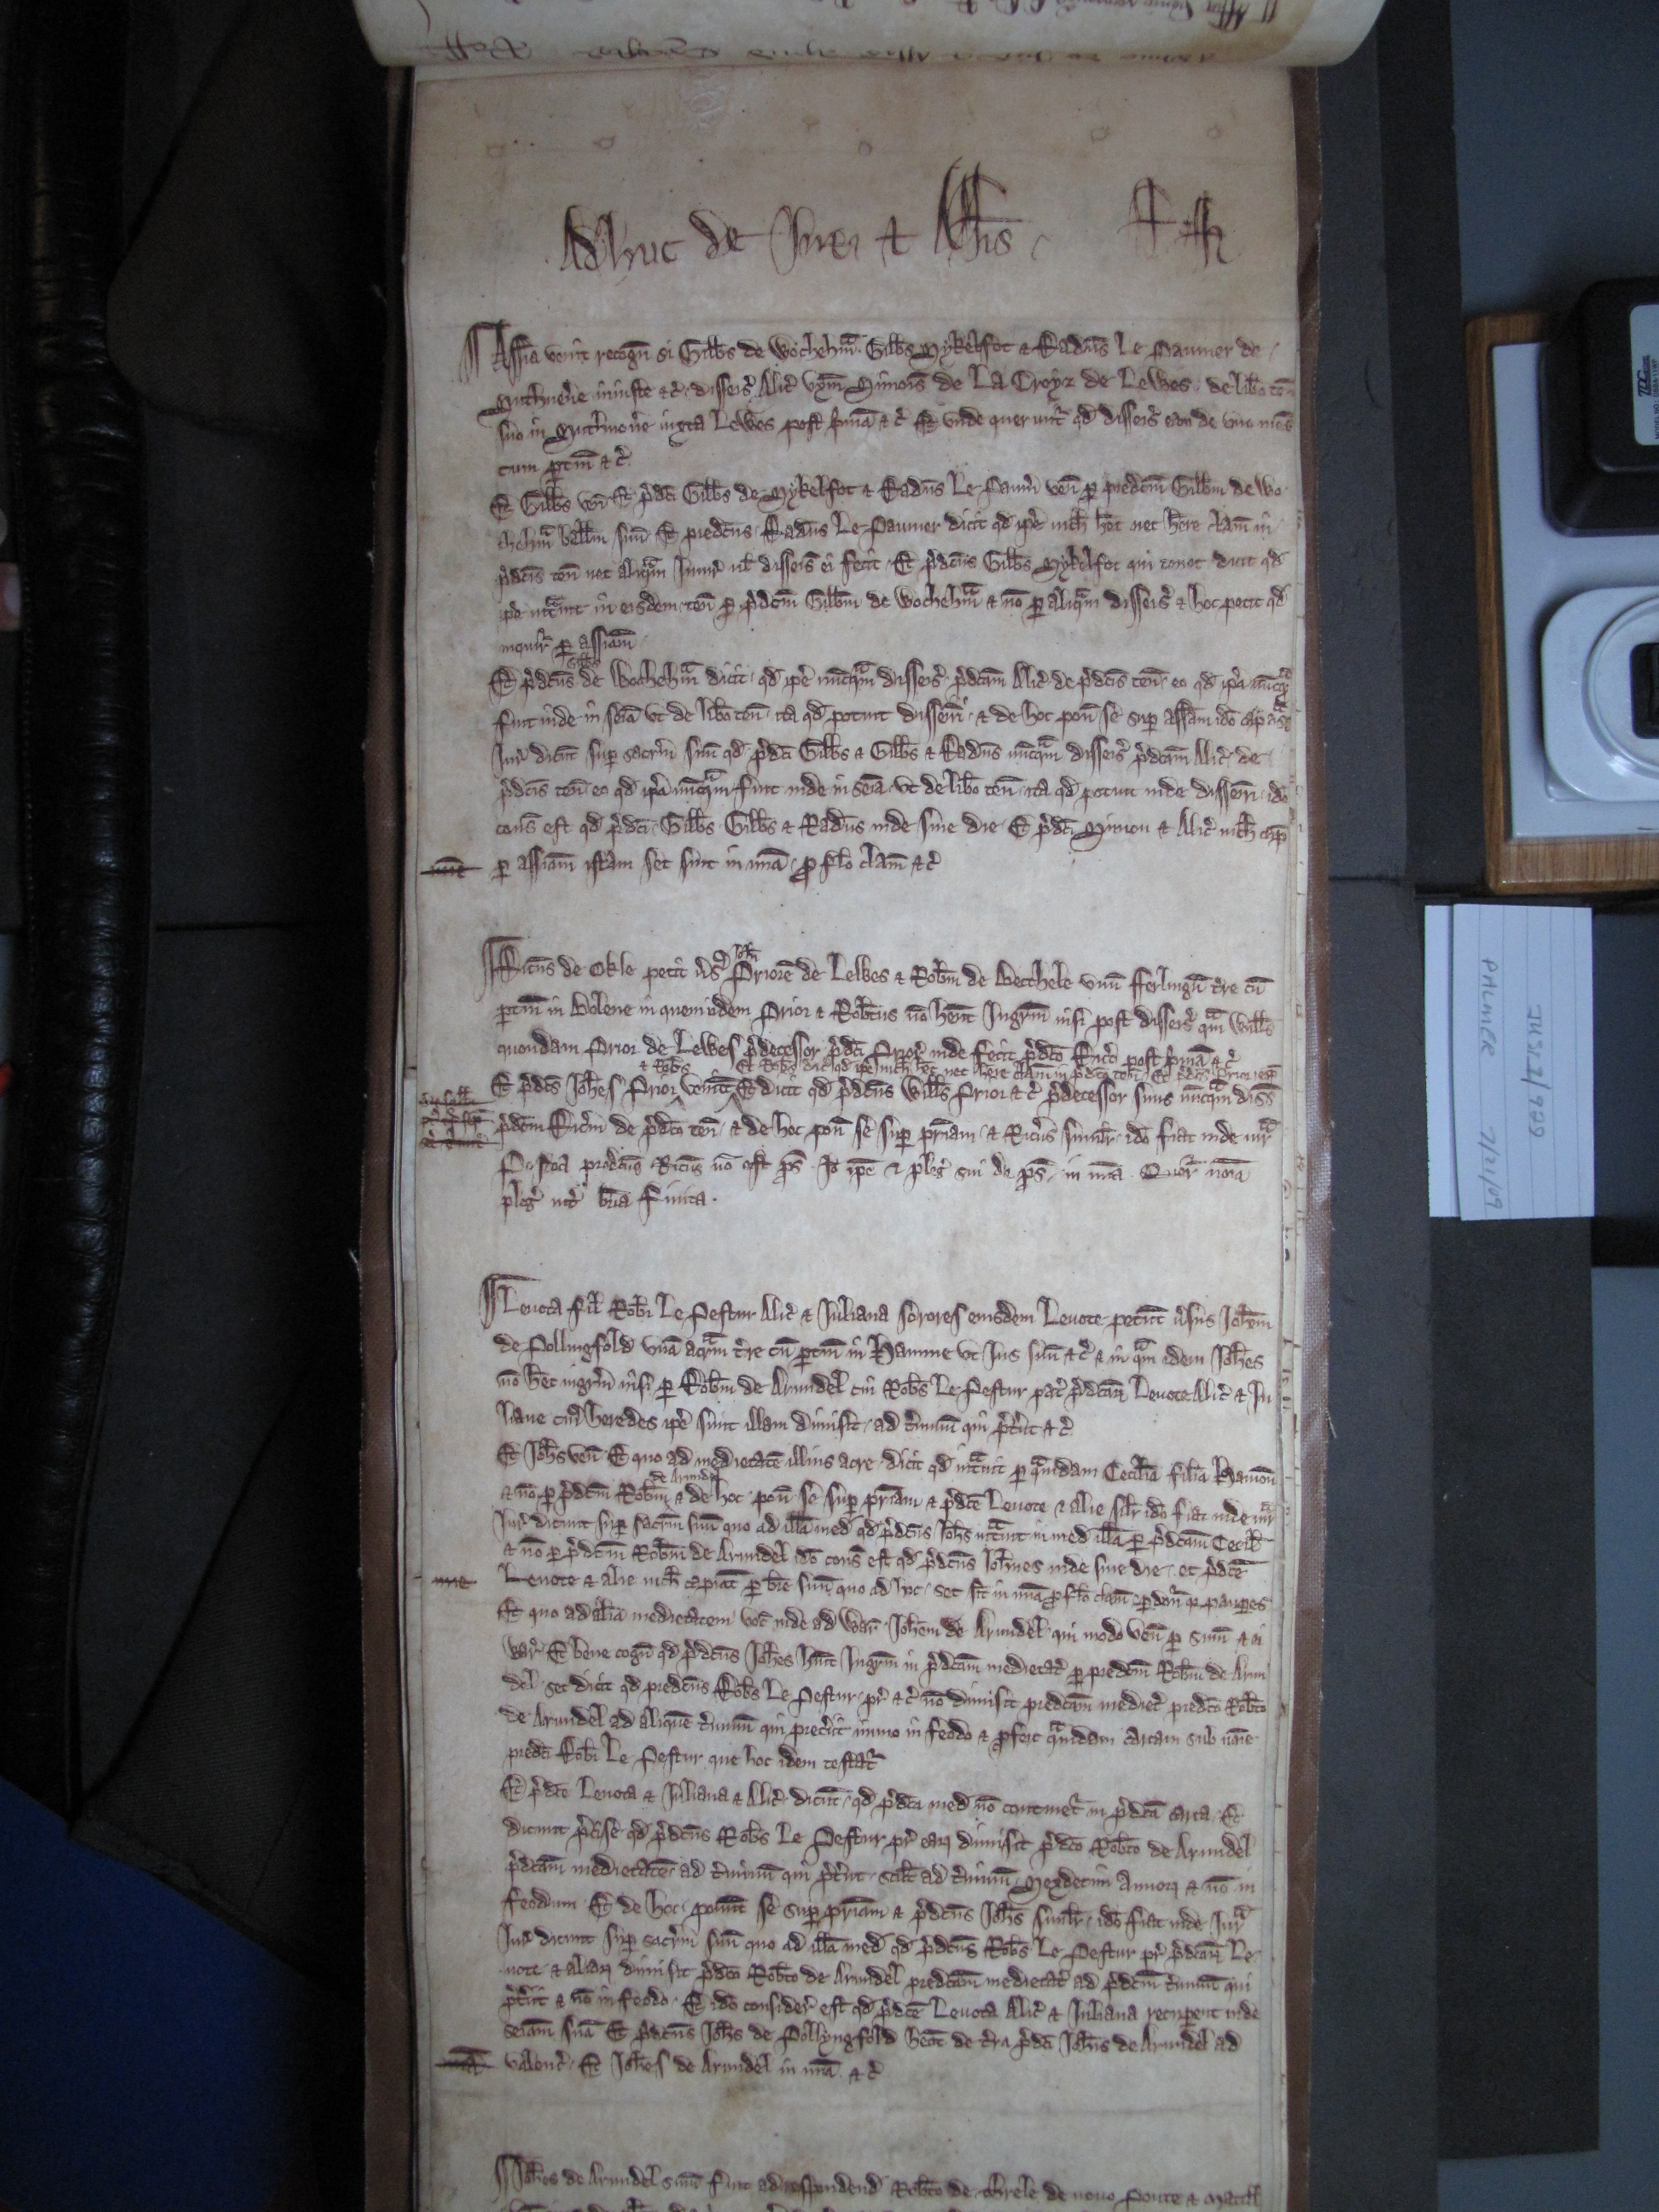 Adhuc de Jur̃ & Assis̃
Assĩa venit recogñ si Gilb̃s de Wochehm̃ Gilb̃s Mykelfot & Rad̃us Le Paumer de
iniuste &c̃ disseis̃ Alic̃ vx̃em Simonis de La Croyz de Lewes de lib̃o teñ
suo in iuxta Lewes post p̃mã &c̃ Et vnde querunt̃ qd̃ disseis̃ eam de vno mes
cum ꝑtiñ &c̃
Et Gilb̃s veñ Et p̃dc̃i Gilb̃s de Mykelfot & Rad̃us Le Paum̃ veñ ꝑ predc̃m Gilb̃m de Wo
chehm̃ ball̃m suũ Et predc̃us Rad̃us Le Paumer dicit qd̃ ip̃e nich̃ h̃et nec h̃ere clam̃ in
p̃dc̃is teñ nec aliq̃m Iniur̃ ul̃ disseis̃ ei fecit Et p̃dc̃us Gilb̃s Mykelfot qui tenet dicit qd̃
ip̃e int̃uit in eisdem teñ ꝑ p̃dc̃m Gilb̃m de Wochehm̃ & nõ ꝑ aliq̃m disseis̃ & hoc petit qd̃
inquir̃ ꝑ assĩam
Et p̃dc̃us Gilb̃s de Wochehm̃ dicit qd̃ ip̃e nũcq̃m disseis̃ p̃dc̃am Alic̃ de p̃dc̃is teñ eo qd̃ ip̃a nũcq̃
fuit inde in seĩa vt de lib̃o teñ ita qd̃ potuit disseiri & de hoc poñ se sup̃ assĩam iõ cap̃
Jur̃ dicũt sup̃ sacr̃m suũ qd̃ p̃dc̃i Gilb̃s & Gilb̃s & Rad̃us nũcq̃m disseis̃ p̃dc̃am Alic̃ de
p̃dc̃is teñ eo qd̃ ip̃a nũcq̃m fuit inde in seĩa vt de lib̃o teñ ita qd̃ potuit inde disseiri iõ
cons̃ est qd̃ p̃dc̃i Gilb̃s Gilb̃s & Rad̃us inde sine die Et p̃dc̃i Simon & Alic̃ nich̃ cap̃
mĩe ꝑ assĩam istam set sint in mĩa ꝓ fl̃o clam̃ &c̃
Ric̃us de Okle petit ṽs̃ Joh̃em Priorẽ de Lewes & Rob̃m de Becchele vnũ fferlingũ t̃re cũ
ꝑtiñ in Bolene in quem idem Prior & Rob̃tus nõ hẽnt Ingr̃m nisi post disseis̃ q̃m Will̃s
quondam Prior de Lewes p̃decessor p̃dc̃i Prior̃ inde fecit p̃dc̃o Ric̃o post p̃mã &c̃
& Rob̃s Et Rob̃s dic̃ qd̃ ip̃e nich̃ h̃et nec h̃ere clam̃ in p̃dc̃is teñ Et p̃dc̃us Prior
Et p̃dc̃us Joh̃es Prior veniũt Et dicit qd̃ p̃dc̃us Will̃s Prior &c̃ p̃decessor suus nũcq̃m diss̃
p̃dc̃m Ric̃m de p̃dc̃o teñ & de hoc poñ se sup̃ pr̃iam & Ric̃us simil̃r iõ fiat inde iur̃
Postea predc̃us Ric̃us nõ est p̃s̃ Jõ ip̃e & pleg̃ sui de p̃s̃ in mĩa Quor̃ noĩa
pleg̃ bria finita
Leuota fil̃ Rob̃i Le Pestur Alic̃ & Juliana sorores eiusdem Leuote petũt ṽsus Joh̃em
de Pollingfold vnã acr̃m t̃re cũ ꝑtiñ in Hamme vt Jus suũ &c̃ & in q̃m idem Joh̃es
nõ h̃et ingr̃m nisi ꝑ Rob̃m de Arundel cui Rob̃s Le Pestur pat̃ p̃dc̃aꝝ Leuote Alic̃ & Ju
liane cui9 heredes ip̃e sunt illam dimisit ad t̃minũ qui p̃t̃iit &c̃
Et Joh̃s veñ Et quo ad medietatẽ illius acre dicit qd̃ int̃uit ꝑ q̃mdam Cecilĩa filĩa Hamoñ
de Arundel
& nõ ꝑ p̃dc̃m Rob̃m & de hoc poñ se sup̃ pr̃iam & p̃dc̃e Leuote & alie sil̃r iõ fiat inde iur̃
Jur̃ dicunt sup̃ sacr̃m suũ quo ad illã med̃ qd̃ p̃dc̃us Joh̃s int̃uit in med̃ illã ꝑ p̃dc̃am Cecil̃
& nõ ꝑ p̃dc̃m Rob̃m de Arundel iõ cons̃ est qd̃ p̃dc̃us Joh̃nes inde sine die et p̃dc̃e
mĩe Leuote & alie nich̃ capiãt ꝑ br̃e suũ quo ad hoc set st̃ in mĩa ꝓ fl̃o clam̃ ꝑdoñ q̃ pauꝑes
Et quo ad aliã medietatem voc̃ inde ad War̃ Joh̃em de Arundel qui modo veñ ꝑ sum̃ & ei
War̃ Et bene cogñ qd̃ p̃dc̃us Joh̃es h̃uit Ingr̃m in p̃dc̃am medietat̃ ꝑ predc̃m Rob̃m de Arun
del set dicit qd̃ predc̃us Rob̃s Le Pestur pr̃ &c̃ nõ dimisit predc̃am mediet̃ predc̃o Rob̃to
de Arundel ad aliquẽ t̃minũ qui pret̃iit immo in feodo & ꝓfert q̃mdam cartam sub noĩe
predc̃i Rob̃i Le Pestur que hoc idem testat̃
Et p̃dc̃e Leuota & Juliana & Alic̃ dicũt qd̃ p̃dc̃a med̃ nõ continet̃ in p̃dc̃a carta Et
dicunt p̃cise qd̃ p̃dc̃us Rob̃s Le Pestur pr̃ eaꝝ dimisit p̃dc̃o Rob̃to de Arundel
p̃dc̃am medietatẽ ad t̃minũ qui p̃t̃iit scil̃t ad t̃minũ Sexdecim Annoꝝ & nõ in
feodum Et de hoc ponũt se sup̃ pr̃iam & p̃dc̃us Joh̃s simil̃r iõ fiat inde Jur̃
Jur̃ dicunt sup̃ sacr̃m suũ quo ad illã med̃ qd̃ p̃dc̃us Rob̃s Le Pestur pr̃ p̃dc̃aꝝ Le
uote & aliaꝝ dimisit p̃dc̃o Rob̃to de Arundel predc̃am medietat̃ ad p̃dc̃m t̃minũ qui
p̃t̃iit & nõ in feodo Et iõ consider̃ est qd̃ p̃dc̃e Leuota Alic̃ & Juliana recuperent inde
seĩam suã Et p̃dc̃us Joh̃s de Pollyngfold h̃eat de t̃ra p̃dc̃i Joh̃is de Arundel ad
mĩa valenc̃ Et Joh̃es de Arundel in mĩa &c̃
Joh̃es de Arundel sum̃ fuit ad respondend̃ Rob̃to de de nouo Ponte & Matill̃
JUST 2/929
PALMER 7/21/09